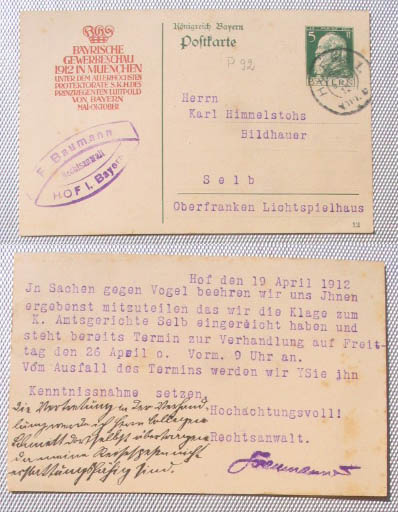 BAYRISCHE
GEWERBESCHAU
1912 IN MUENCHEN
UNTER DEM ALLERHÖCHSTEN
PROTEKTORATE S.K.H.DES
PRINZREGENTEN LUITPOLD
VON BAYERN
MAI-OKTOBER
Königreich Bayern
Postkarte
P 92
5
BAYERN
HOF
F. Baumann
Rechtsanwalt
HOF i. Bayern
Herrn
Karl Himmelstohs
Bildhauer
Selb
Oberfranken Lichtspielhaus
Hof den 19 April 1912
Jn Sachen gegen Vogel beehren wir uns Jhnen
ergebenst mitzuteilen das wir die Klage zum
K. Amtsgerichte Selb eingereicht haben und
steht bereits Termin zur Verhandlung auf Freit-
tag den 26 April c. Vorm. 9 Uhr an.
Vom Ausfall des Termins werden wir YSie jhn
Kenntnissnahme setzen,
Hochachtungsvoll!
Rechtsanwalt.
Die Vertretung in der Verhand-
lung werde ich Herrn Collegen
daselbst übertragen
da meine Reisespesen nicht
erstattungsfähig sind.
Baumann